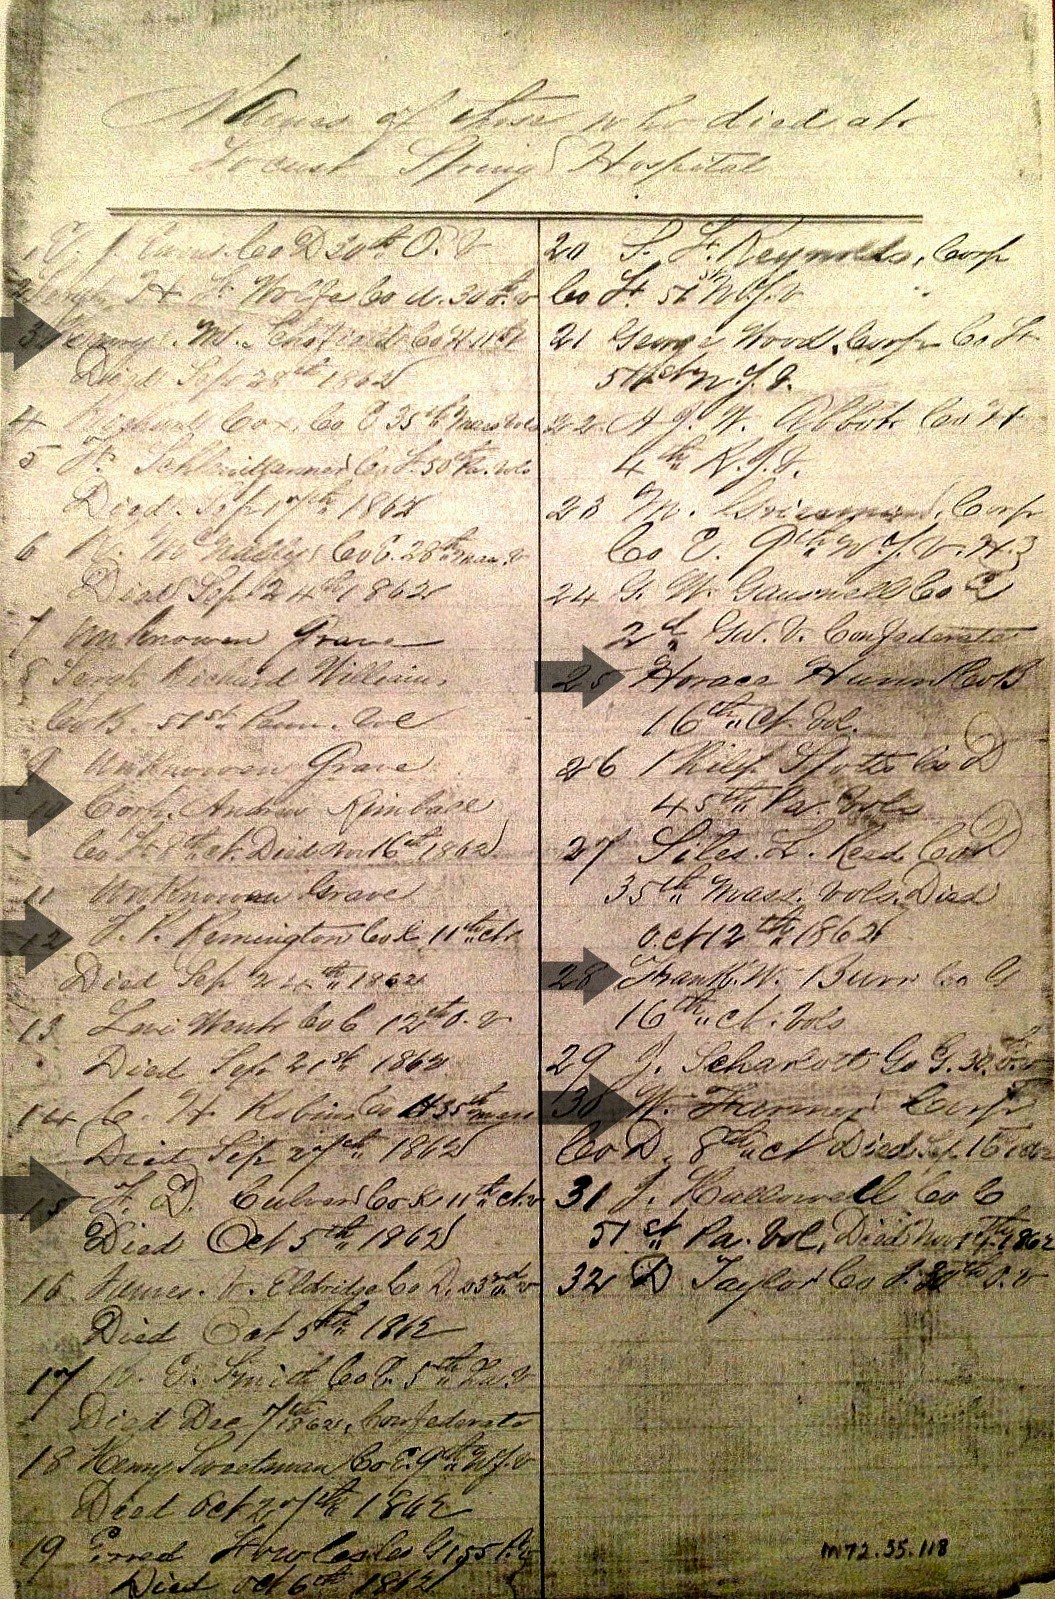 Names of those who died at
Locust Spring Hospital
1 J. Co D 30th O. V
2 Sergt H. F. Wolfe Co 30 O. v
3 Henry M. Co H 11 Ct
Died Sep 28th 1862
4 Richard Cox, Co 35th Mass Vols
5 F. Co F. 50th Pa. vols
Died. Sep 17th 1862
6 McNally Co E. 28th Mass. V
Died Sep 24th 1862
7 Unknowen Grave
8 Sergt Richard Williams
Co B. 51st Penn. Vol
9 Unknowen Grave
10 Corp. Andrew Kimball
Co 8th Ct. Died Nov 16th 1862
11 Unknowen Grave
12 Remington Co 11th Ct
Died Sep 24th 1862
13 Levi Co C 12th O. V
Died Sep 21st 1862
14 C. H Robins Co H 35th Mass
Died Sep 27th 1862
15 F. D. Culver Co K 11th Ct. v
Died Oct 5th 1862
16 James. Eldridge Co D. 23rd O. V
Died Oct 5th 1862
17 Smith Co 5th V
Died Dec 7th 1862, Confederate
18 Henry Sweetman Co E. 9th N.Y. v
Died Oct 27th 1862
19 Co G
Died Oct 6th 1862
20 S. F. Reynolds, Corp
Co F. 51st N.Y. v
21 George Wood, Corp Co F
51st N.Y. V.
22 A G. W. Abbott Co H
4th R.I.V.
23 M. Corp
Co E. 9th N. Y. V. H. Z
24 G. W. Co
2d V. Confederate
25 Horace Hunn Co B
16th Ct. Vol.
26 Philip Spotts Co D
45th Pa. Vols
27 Siles. L. Read. Co D
35th Mass. Vols. Died
Oct 12th 1862
28 Frank. W. Burr Co G
16th Ct. Vols
29 J. Co G. 30. O. V
30 W. Farmer Corp
Co D. 8th Ct Died Sep. 16 1862
31 J. Hallowell Co C
51st Pa. Vol, Died Nov 1862
32 D Taylor Co O. V
M72.55.118